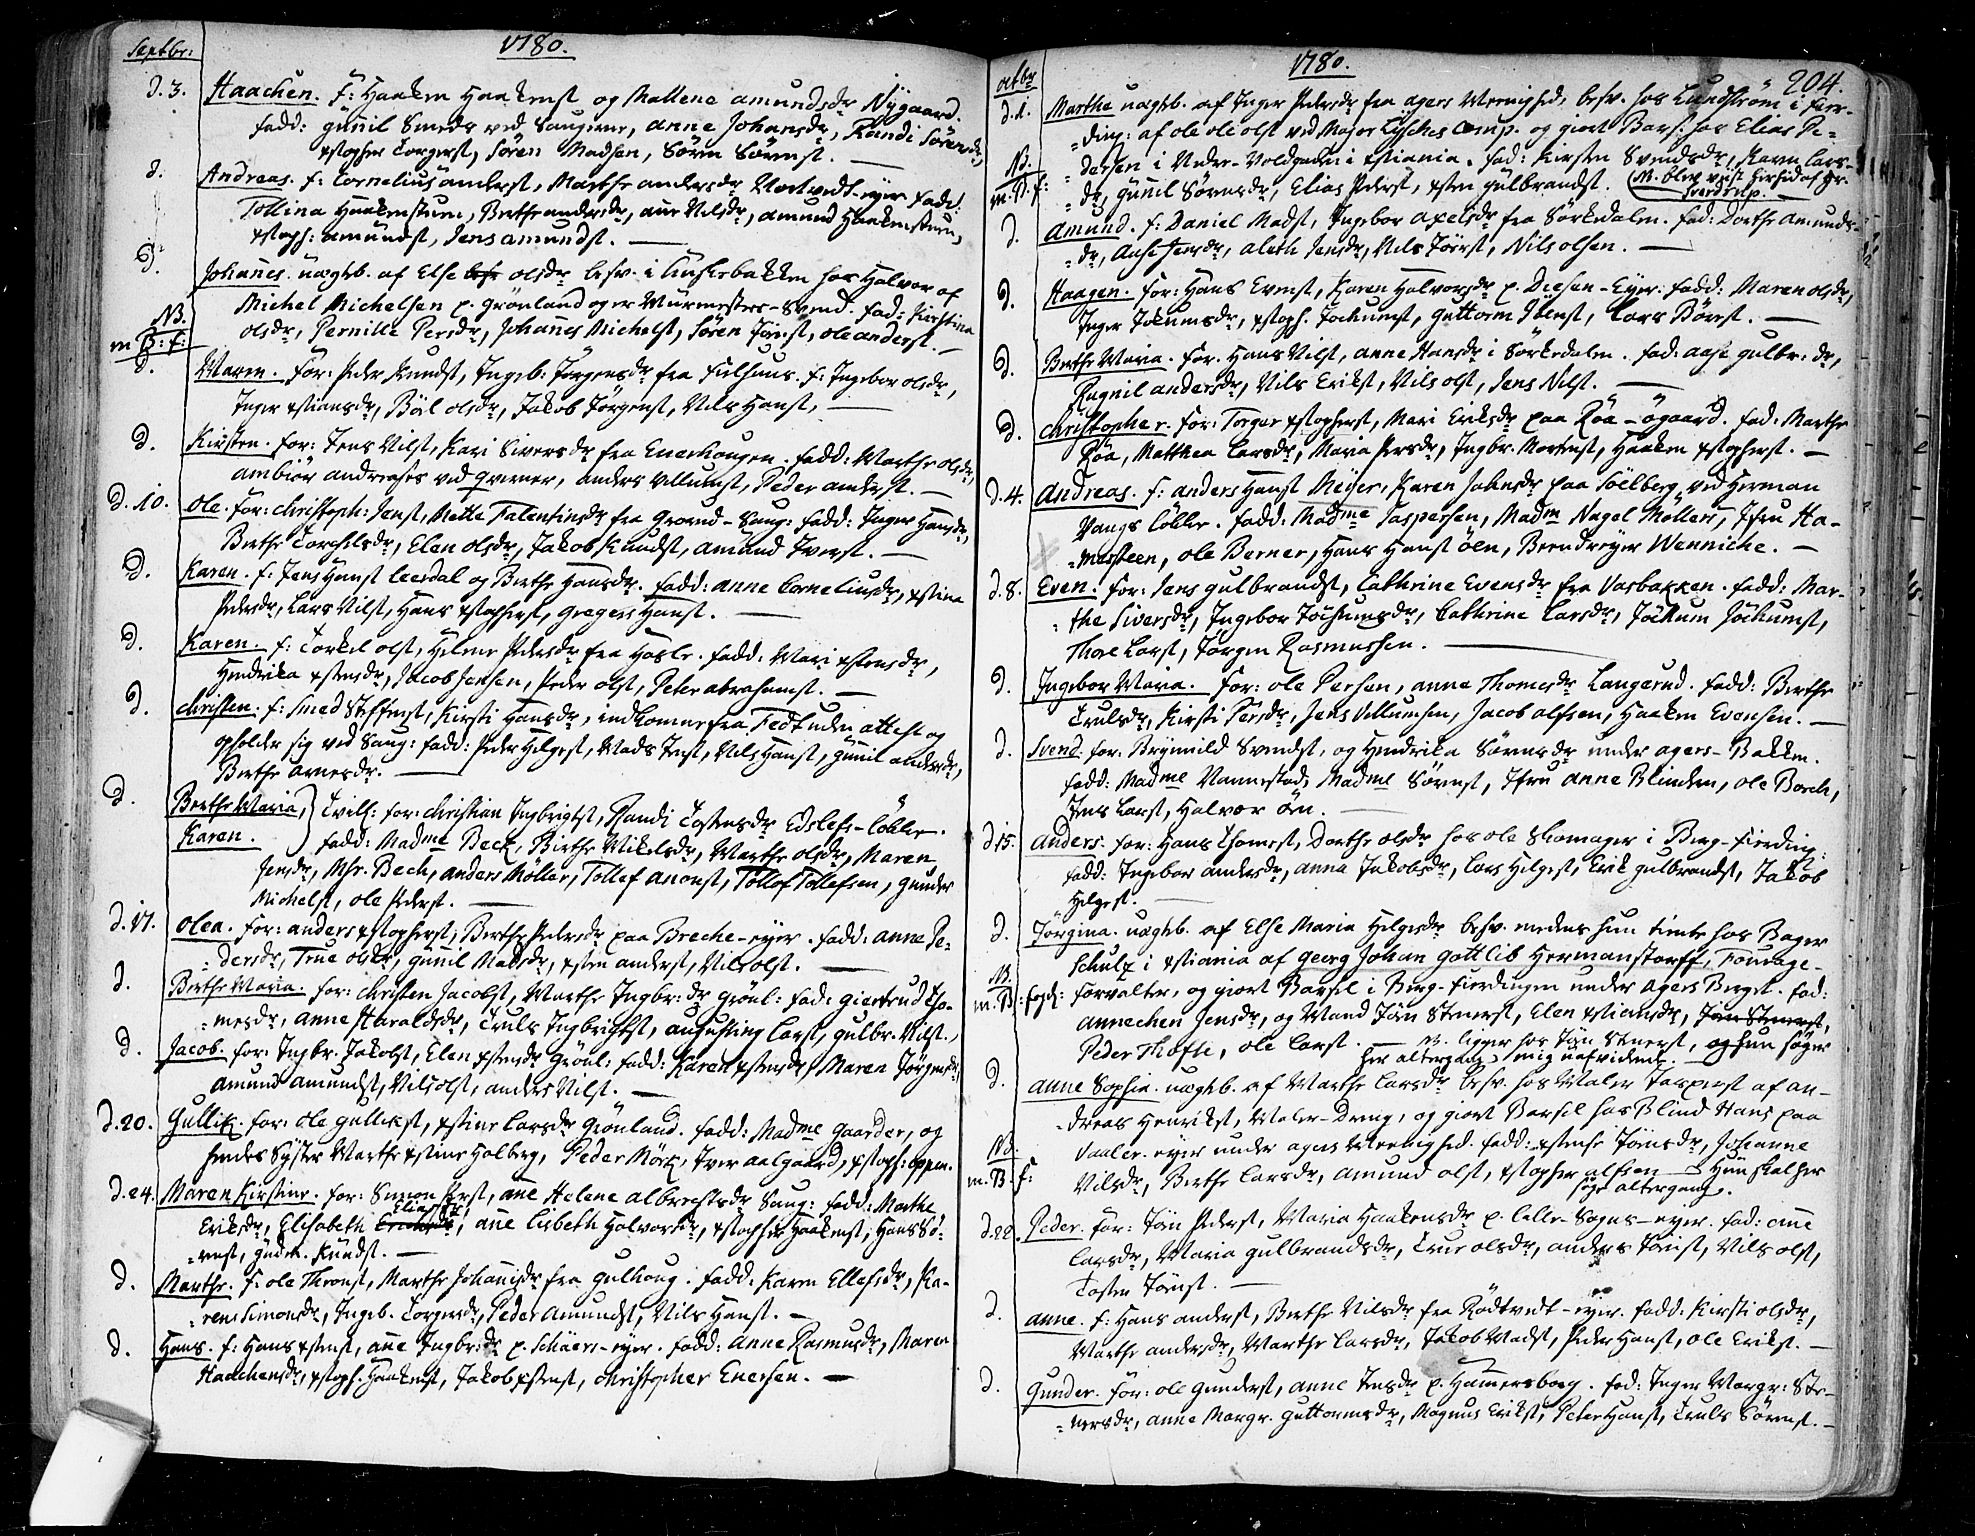 Septbr: 1780.
d. 3. Haachen. F: Haaken Haakenst og Mallene Amundsdr Nygaard.
fadd: Gunil Smeds ved Saugerne, Anne Johansdr, Randi Sörensdr,
xstopher Torgerst, Sören Madsen, Sören Sörenst. —
d. Andreas. f: Cornelius Anderst, Marthe Andersdr Tvetvedt-eyer fadd:
Tolline Haakenstuen, Berthe Andersdr, Ane Nilsdr, Amund Haakenstuen,
xstoph: Amundst, Jens Amundst. —
d. Johanes. uægteb. af Else Olsdr besv. i Enkebakken hos Halvor af
Michel Michelsen p. Grönland og er Muurmester-Svend. fad: Kirstine
NB. Olsdr, Pernille Persdr, Johannes Michelst, Sören Jörist, Ole Anderst. —
m B: f:
d. Maren. For: Peder Knudst, Ingeb: Jörgensdr fra Fielhuus. f: Ingebor Olsdr,
Inger xstiansdr, Böl Olsdr, Jakob Jörgenst, Nils Hanst, —
d. Kirsten. for: Jens Nilst, Kari Siversdr fra Enerhougen. fadd: Marthe Olsdr,
Ambiör Andreases ved Qverner, Anders Villumst, Peder Anderst. —
d. 10. Ole. for: Christoph: Jenst, Mette Falentinsdr fra Grorud-Saug: fadd: Inger Hansdr,
Berthe Torchelsdr, Elen Olsdr, Jakob Knudst, Amund Iverst. —
d. Karen. f: Jens Hanst Leerdal og Berthe Hansdr. fadd: Anne Corneliusdr, xstine
Pedersdr, Lars Nilst, Hans xstopherst, Gregers Hanst. —
d. Karen. f: Torkel Olst, Helene Pedersdr fra Hasle. fadd: Mari xstensdr,
Hendrika xstensdr, Jacob Jensen, Peder Olst, Peter Abrahamst. —
d. Christen. f: Smed Steffenst, Kirsti Hansdr, indkomne fra uden attest og
opholder sig ved Saug: fadd: Peder Helgest, Mads Jenst, Nils Hanst, Gunil Andersdr,
Berthe Arnesdr. —
d. Berthe Maria, } Tvill: for: Christian Ingbrigtst, Randi Tostensdr Edslefs-Lökke.
Karen. fadd: Madme Beck, Birthe Mikelsdr, Marthe Olsdr, Maren
Jensdr, Msr. Bech, Anders Möller, Tollef Anonst, Tollof Tollefsen, Gunder
Michelst, Ole Pederst. —
d. 17. Olea. For: Anders xstopherst, Berthe Pedersdr paa Breche-eyer. fadd: Anne Pe-
dersdr, True Olsdr, Gunil Madsdr, xsten Anderst, Nils Olst. —
d. Berthe Maria. for: Christen Jacobst, Marthe Ingbr: dr Grönl: fad: Giertrud Tho-
mesdr, Anne Haraldsdr, Truls Ingbrigtst, Augusting Larst, Gulbr. Nilst.
d. Jacob. for: Ingbr. Jakobst, Elen xstensdr Grönl: fadd: Karen xstensdr, Maren Jörgensdr,
Amund Amundst, Nils Olst, Anders Nilst. —
d. 20. Gullik. for: Ole Gullikst, xstine Larsdr Grönland. fadd: Madme Gaarder, og
hendes Syster Marthe xstine Holberg, Peder Mörk, Iver Aalgaard, xstoph: Oppen.
d. 24. Maren Kirstine. for: Simon Perst, Ane Helene Albrechtsdr Saug: fadd: Marthe
Eriksdr, Elisabeth Eliasdr, Ane Lisbeth Halvorsdr, xstopher Haakenst, Hans Sö-
renst, Gudm. Knudst. —
d. Marthe. f: Ole Thronst, Marthe Johanisdr fra Gulhoug. fadd: Karen Ellefsdr, Ka-
ren Simonsdr, Ingeb. Torgersdr, Peder Amundst, Nils Hanst. —
d. Hans. f: Hans xstenst, Ane Ingbr: dr p. Schöiers-eyer. fadd: Anne Rasmusdr, Maren
Haachensdr, xstoph. Haakenst, Jakob xstenst, Christopher Enersen. —
octbr 1780. 204.
d. 1. Marthe uægteb. af Inger Pedersdr fra Agers Menighed, besv. hos Lundström i Fier-
ding: af Ole Olst ved Major Lyches Comp. og giort Bars. hos Elias Pe-
NB. dersen i Neder-Voldgaden i xstiania. fad: Kirsten Svendsdr, Karen Lars-
m. B. f: dr, Gunil Sörensdr, Elias Pederst, xsten Gulbrandst. (NB. blev viist hid af Hr.
Sverdrup.
d. Amund. f: Daniel Madst, Ingebor Axelsdr fra Sörkedalen. fad: Dorthe Amunds-
dr, Aase Jensdr, Aleth Jensdr, Nils Jörist, Nils Olsen. —
d. Haagen. for: Hans Evenst, Karen Halvorsdr p. Diesen-Eyer: fadd: Maren Olsdr,
Inger Jokumsdr, xstoph. Jockumst, Guttorm Ibenst, Lars Börrst. —
d. Berthe Maria. for. Hans Nilst, Anne Hansdr i Sörkedalen. fad: Aase Gulbr: dr,
Ragnil Andersdr, Nils Erikst, Nils Olst, Jens Nilst. —
d. Christopher. for: Torger xstopherst, Mari Eriksdr paa Röa-ögaard. fad: Marthe
Röa, Matthea Larsdr, Maria Persdr, Ingbr. Mortenst, Haaken xstopherst. —
d. 4. Andreas. f: Anders Hanst Meyer, Karen Johnsdr paa Soelberg ved Herman
Vangs Lökke. fadd: Madme Jaspersen, Madm Nagel Möllers, Jfru Ha-
mersteen, Ole Berner, Hans Hanst Öen, Brendreyer Wenniche. —
d. 8. Even. for: Jens Gulbrandst, Cathrine Evensdr fra Vasbakken. fadd: Mar-
the Siversdr, Ingebor Jochumsdr, Cathrine Larsdr, Jöchum Jöchumst,
Thore Larst, Jörgen Rasmussen. —
d. Ingebor Maria. for: Ole Persen, Anne Thomesdr Langerud. fadd: Berthe
Trulsdr, Kirsti Persdr, Jens Villumsen, Jacob Alfsen, Haaken Evensen. —
d. Svend. for. Brynnild Svendst, og Hendrika Sörensdr under Agers-Bakken.
fadd: Madme Vannestad, Madme Sörenst, Jfru Anne Blinden, Ole Borch,
Jens Larst, Halvor Öen. —
d 15. Anders. for: Hans Thomest, Dorthe Olsdr hos Ole Skomager i Berg-Fierding.
fadd: Ingebor Andersdr, Anna Jakobsdr, Lars Helgest, Erik Gulbrandst, Jakob
Helgest. —
d. Jörgina. uægteb. af Else Maria Helgesdr besv. medens hun tiente hos Bager
Schulz i xstiania af Georg Johan Gottlib Hermanstorff, Fourage-
NB. m. B: forvalter, og giort Barsel i Berg-Fierdingen under Agers Berget. fad:
Annechen Jensdr, og Mand Jön Stenerst, Elen xstiansdr, Jön Stenerst,
Peder Thofte, Ole Larst. — NB. ligger hos Jön Stenerst, og hun söger
her altergang mig uafvidende.
d. Anne Sophie. uægteb. af Marthe Larsdr besv. hos Maler Jasperst af An-
dreas Henrikst, Maler-Dreng, og giort Barsel hos Blind Hans paa
NB. Vaaler-eyer under Agers Menighed. fadd: xstense Jönsdr, Johanne
m. B f: Nilsdr, Berthe Larsdr, Amund Olst, xstopher Alfsen — Hun skal her
söge altergang.
d. 22. Peder. for: Jön Pederst, Maria Haakensdr p. Lille-Sogns-eyer. fad: Ane
Larsdr, Maria Gulbrandsdr, True Olsdr, Anders Jönst, Nils Olst,
Tosten Jönst. —
d. Anne. f: Hans Anderst, Berthe Nilsdr fra Rödtvedt-eyer. fadd: Kirsti Olsdr,
Marthe Andersdr, Marthe Larsdr, Jakob Madst, Peder Hanst, Ole Erikst. —
d. Gunder. for: Ole Gunderst, Anne Jensdr p. Hammersborg. fad: Inger Margr: Ste-
nersdr, Anne Margr. Guttormsdr, Magnus Erikst, Peter Hanst, Truls Sörenst. —